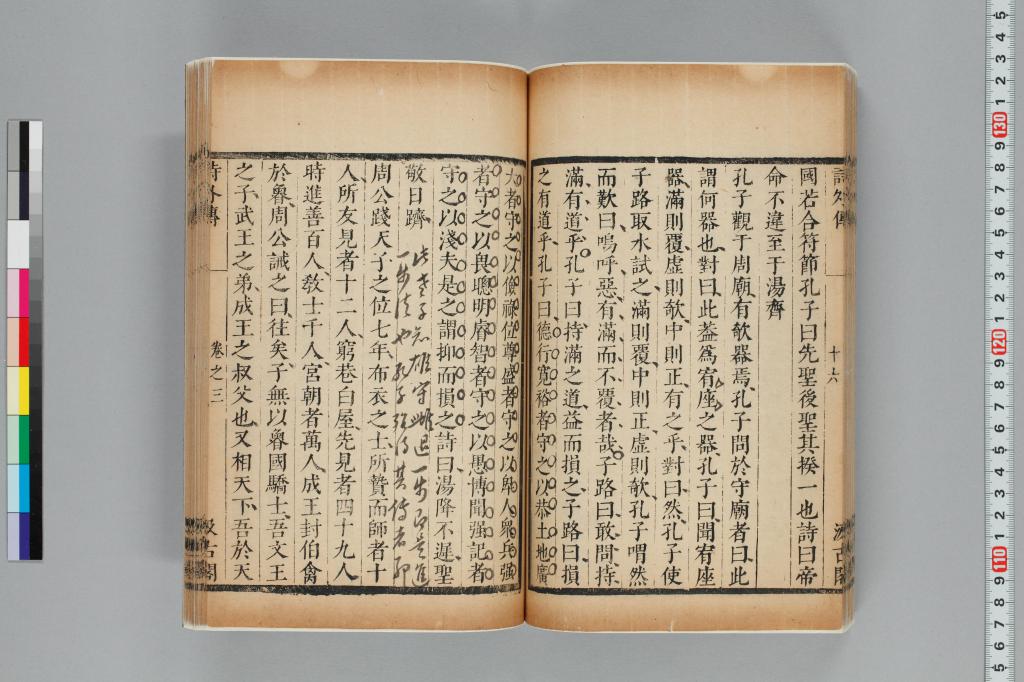 國若合符節孔子曰先聖後聖其揆一也詩曰帝
命不違至于湯齊
孔子觀于周廟有欹器焉孔子問於守廟者曰此
謂何器也對曰此葢爲宥座之器孔子曰聞宥座
器滿則覆虛則欹中則正有之乎對曰然孔子使
子路取水試之滿則覆中則正虛則欹孔子喟然
而歎曰嗚呼惡有滿而不覆者哉子路曰敢問持
滿有道乎孔子曰持滿之道益而損之子路曰損
之有道乎孔子曰德行寬裕者守之以恭土地廣
大者守之以儉祿位尊盛者守之以卑人衆兵强
者守之以畏聰明睿智者守之以愚博聞强記者
守之以淺夫是之謂抑而損之詩曰湯降不遲聖
敬日躋
周公踐天子之位七年布衣之士所贄而師者十
人所友見者十二人窮巷白屋先見者四十九人
時進善百人敎士千人宮朝者萬人成王封伯禽
於魯周公誡之曰往矣子無以魯國驕士吾文王
之子武王之弟成王之叔父也又相天下吾於天
詩外傳
卷之三
十六
汲古閣